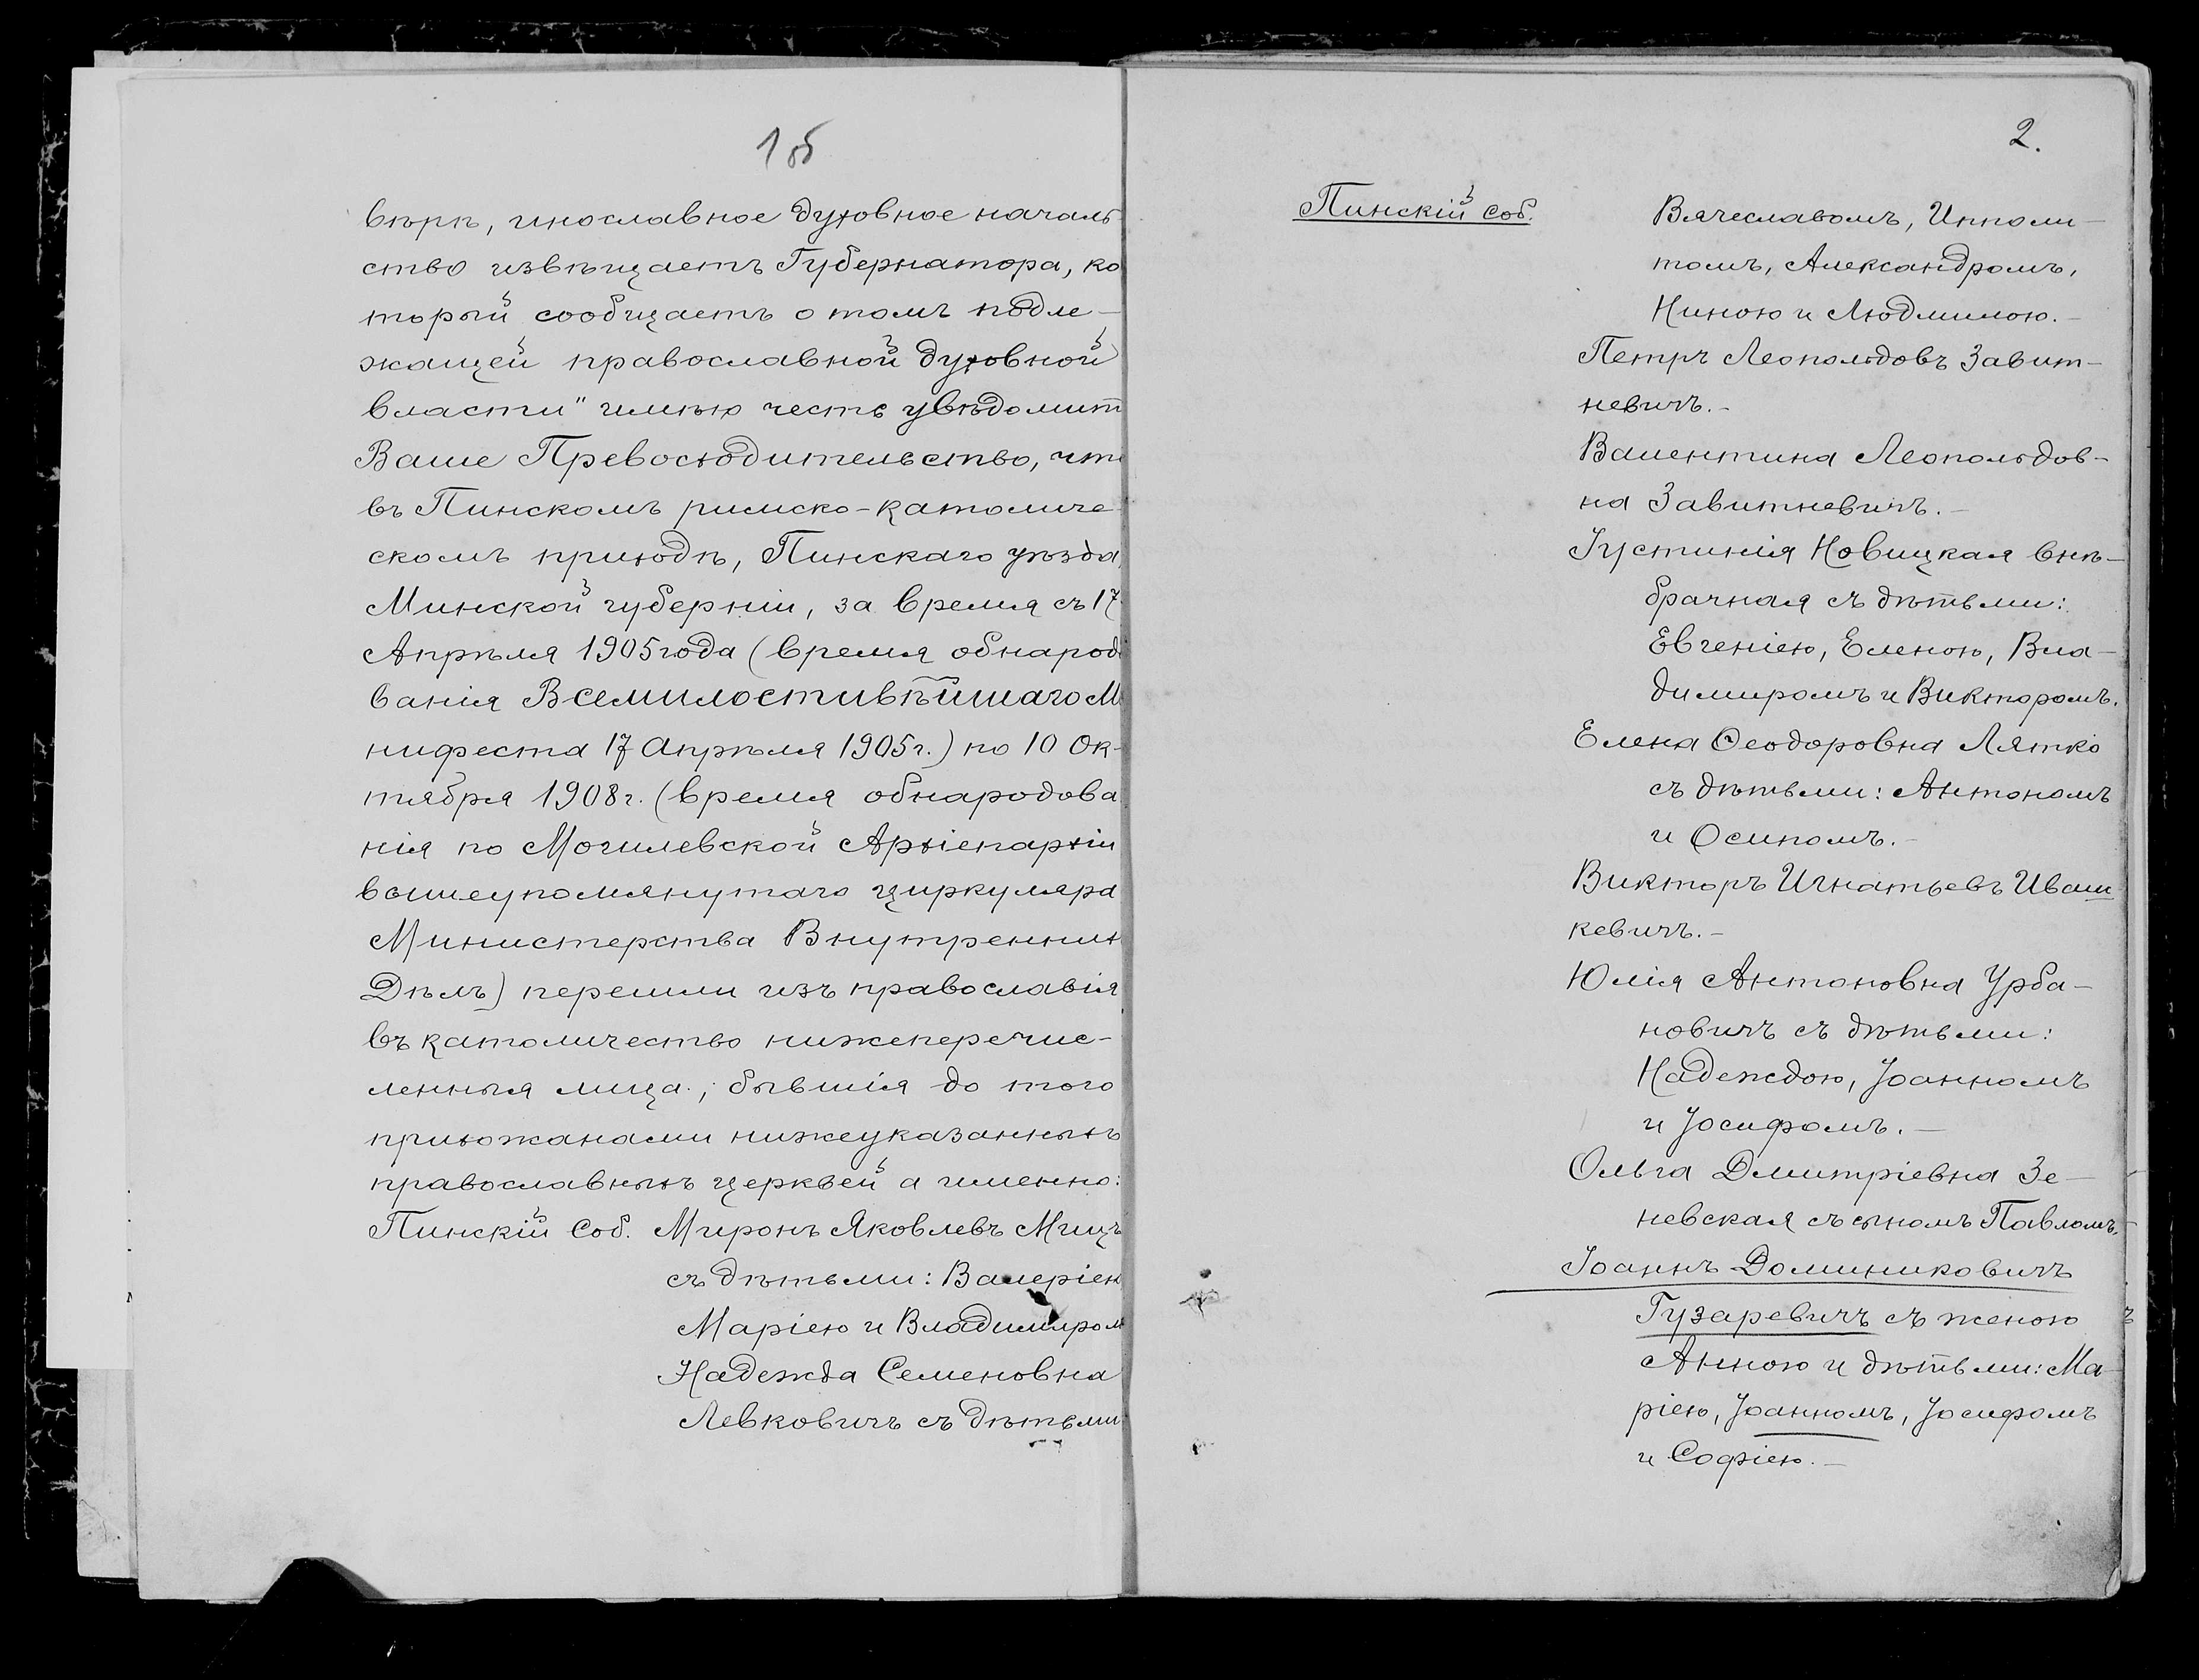 1 об
вѣрѣ, инославное духовное началь-
ство извѣщаетъ Губернатора, ко
торый сообщаетъ о томъ подле-
жащей православной духовной
власти" имѣю честь увѣдомит
Ваше Превосходительство, что
въ Пинскомъ римско-католиче
скомъ приходѣ, Пинскаго уѣзда,
Минской губерніи, за время съ 17
Апрѣля 1905 года (время обнародо
ванія Всемилостивѣйшаго М
нифеста 17 Апрѣля 1905 г.) по 10 Ок-
тября 1908 г. (время обнародова
нія по Могилевской Архіепархіи
вышеупомянутаго циркуляра
Министерства Внутреннихъ
Дѣлъ) перешли изъ православія
въ католичество нижеперечис-
ленныя лица, бывшія до того
прихожанами нижеуказанныхъ
православныхъ церквей а именно:
Пинскій Соб. Миронъ Яковлевъ Мицъ
съ дѣтьми: Валеріею
Маріею и Владиміром
Надежда Семеновна
Левковичъ съ дѣтьми
2.
Пинскій Соб. Вячеславомъ, Ипполи-
томъ, Александромъ,
Ниною и Людмилою.-
Петръ Леопольдовъ Завит-
невичъ.-
Валентина Леопольдов-
на Завитневичъ.-
Іустинія Новицкая внѣ-
брачная съ дѣтьми:
Евгеніею, Еленою, Вла-
димиромъ и Викторомъ.
Елена Ѳеодоровна Лятко
съ дѣтьми: Антономъ
и Осипомъ.-
Викторъ Игнатьевъ Иваш
кевичъ.-
Юлія Антоновна Урба-
новичъ съ дѣтьми:
Надеждою, Іоанномъ
и Іосифомъ.-
Ольга Дмитріевна Зе-
невская съ сыномъ Павломъ.-
Іоаннъ Доминиковичъ
Гузаревичъ съ женою
Анною и дѣтьми: Ма-
ріею, Іоанномъ, Іосифомъ
и Софіею.-